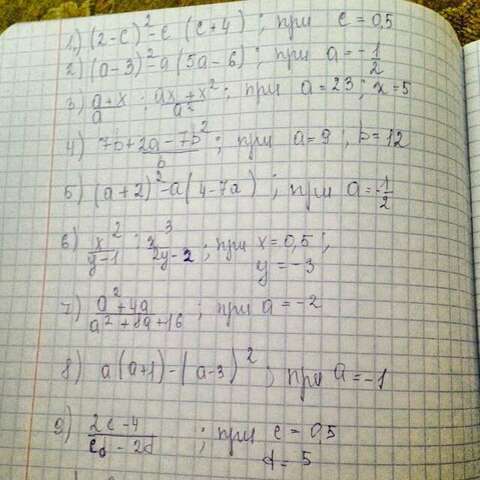 1) (2-c)² - c (c+4) ; при c = 0,5
2) (a-3)² - a (5a-6) ; при a = -1/2
3) a+x/a : ax+x²/a² ; при a = 23 ; x = 5
4) 7b + 2a-7b²/b ; при a = 9 , b = 12
5) (a+2)² - a (4-7a) ; при a = -1/2
6) x²/y-1 : x³/2y-2 ; при x = 0,5 ,
y = -3
7) a²+4a/a²+8a+16 ; при a = -2
8) a (a+1) - (a-3)² ; при a = -1
9) 2c-4/cd-2d ; при c = 0,5
d = 5